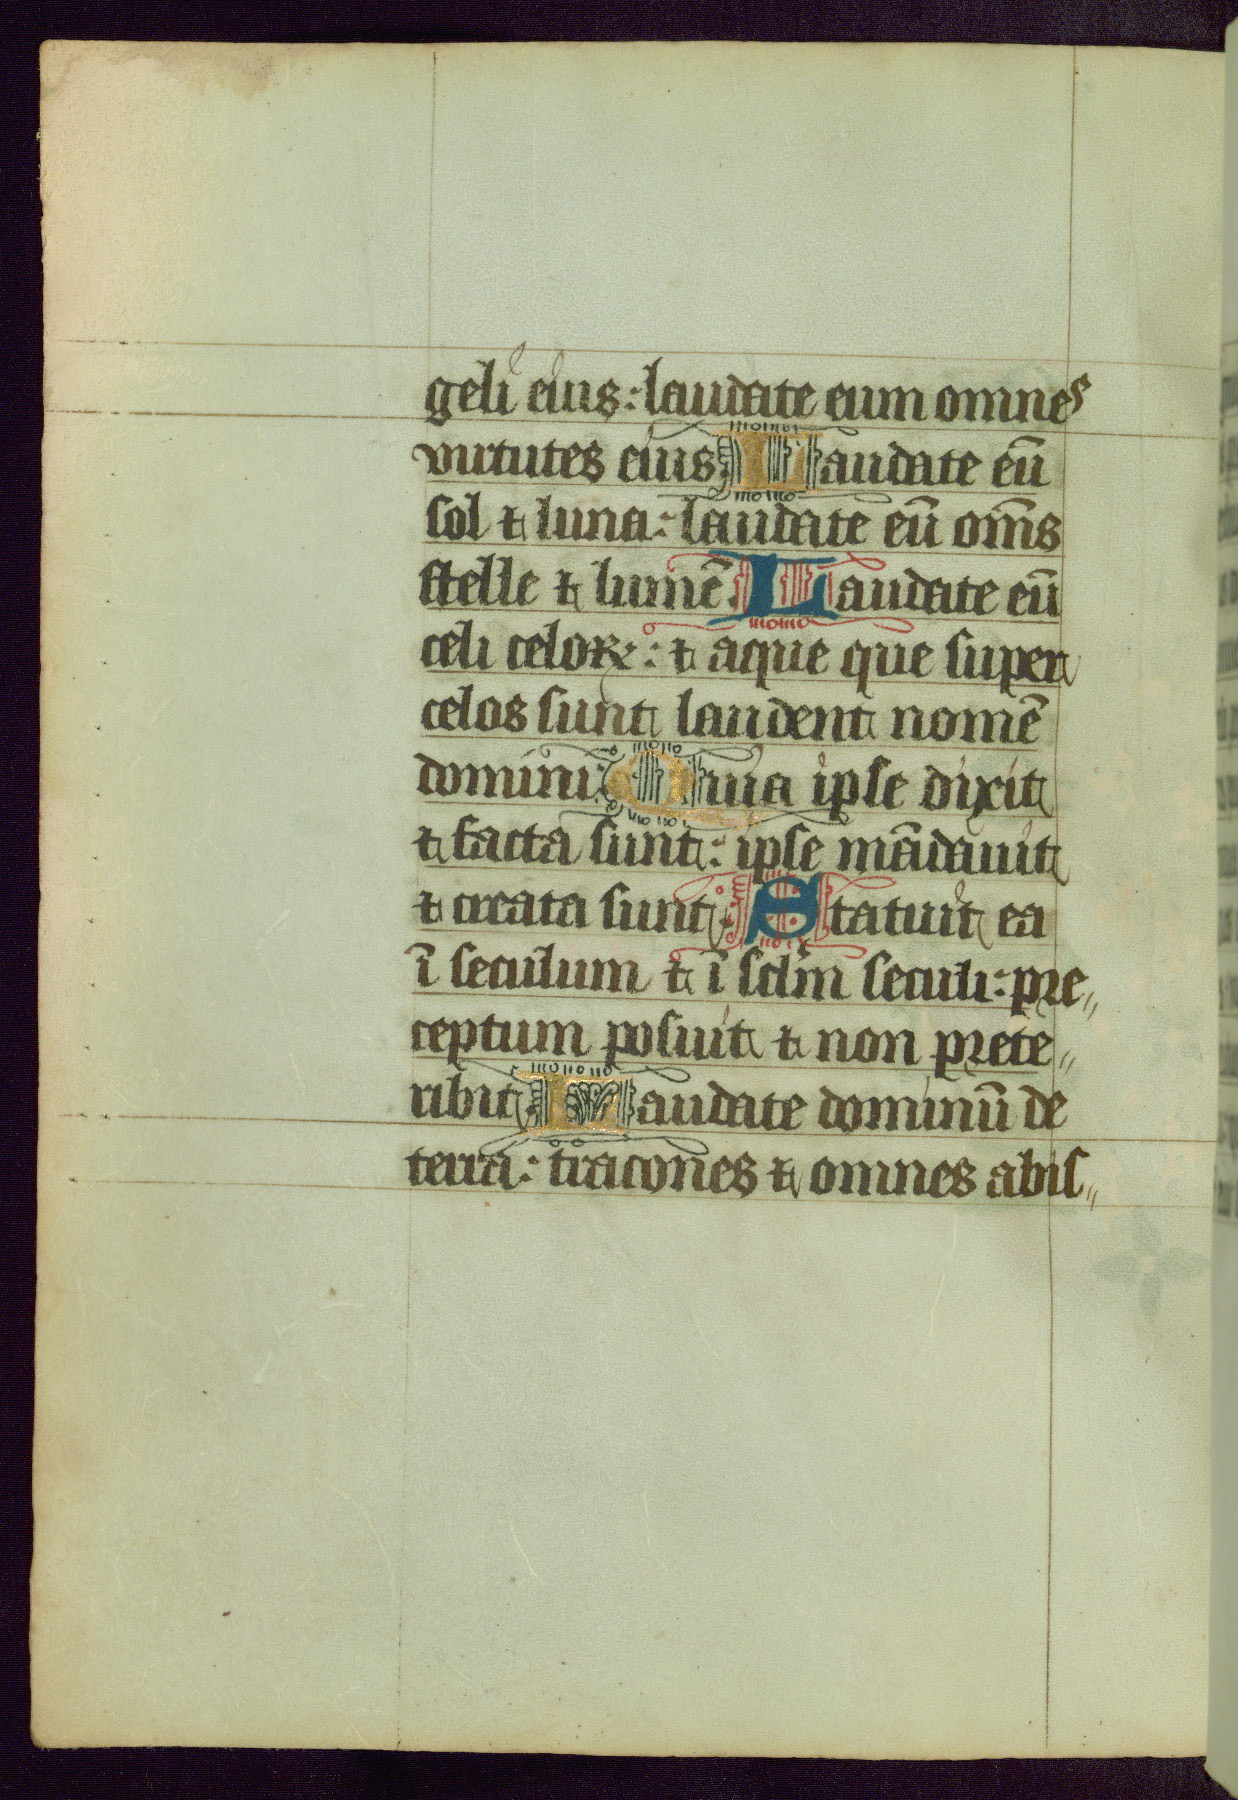 geli eius: laudate eum omnes
virtutes eius. Laudate eū
sol ⁊ luna: laudate eū om̄s
stelle ⁊ lumē. Laudate eū
celi celoꝝ: ⁊ aque que super
celos sunt laudent nomē
domini. Quia ipse dixit
⁊ facta sunt: ipse mādauit
⁊ creata sunt. Statuit ea
ī seculum ⁊ ī sclm̄ seculi: pre〃
ceptum posuit ⁊ non prete〃
ribit. Laudate dominū de
terra: tracones ⁊ omnes abis〃